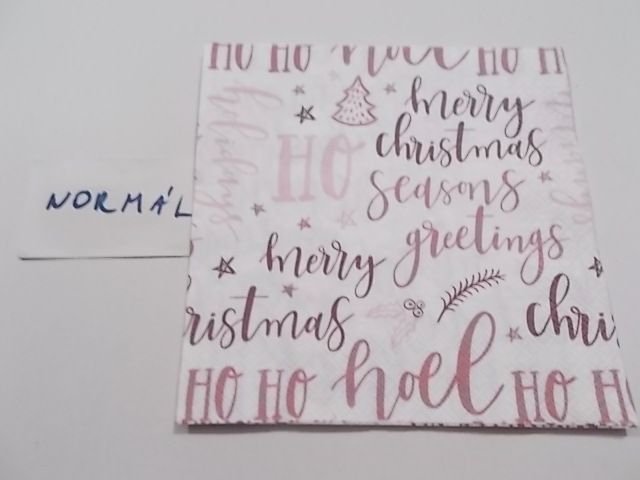 HO HO noel HO H
holidays
merry
christmas
HO
seasons
greetings
NORMÁL
merry
ristmas
chri
HO HO noel HO H